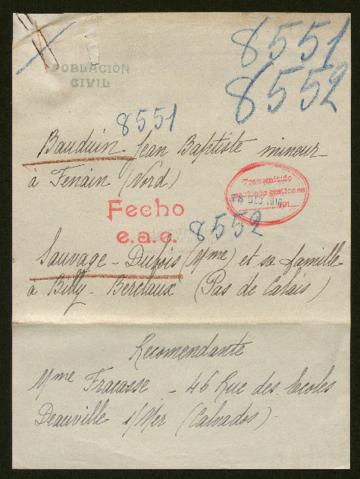 POBLACIÓN
CIVIL
8551
8552
8551
Bauduin Jean Baptiste mineur
à Fenain (Nord)
Transmitido
Fecho
e.a.c.
8552
Sauvage-Dubois (Mme) et sa famille
à Billy-Berclaux (Pas de Calais)
Recomendante
Mme Fracasse - 46 Rue des Ecoles
Deauville s/Mer (Calvados)